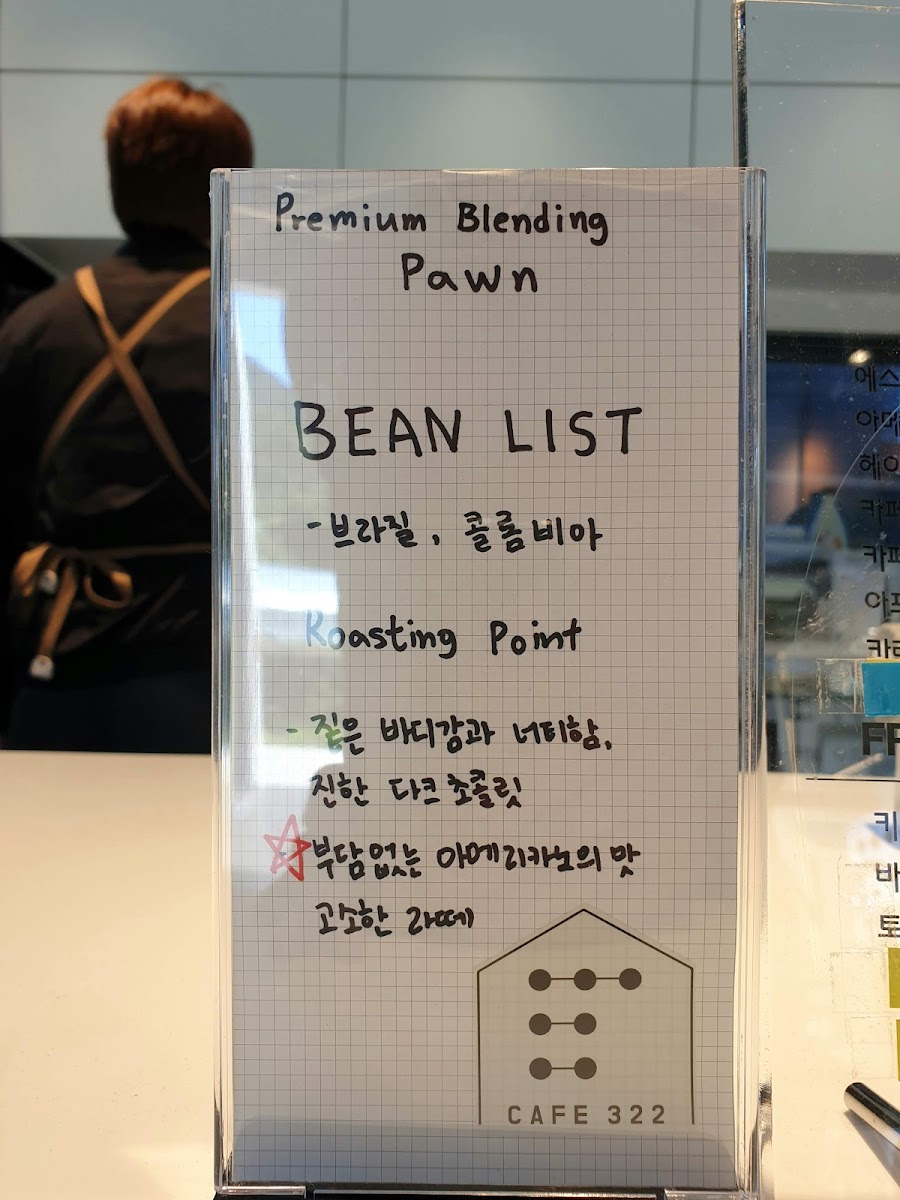 Premium Blending
Pawn
BEAN LIST
- 브라질, 콜롬비아
Roasting Point
- 짙은 바디감과 너티함,
진한 다크 초콜릿
부담없는 아메리카노의 맛
고소한 라떼
CAFE 322